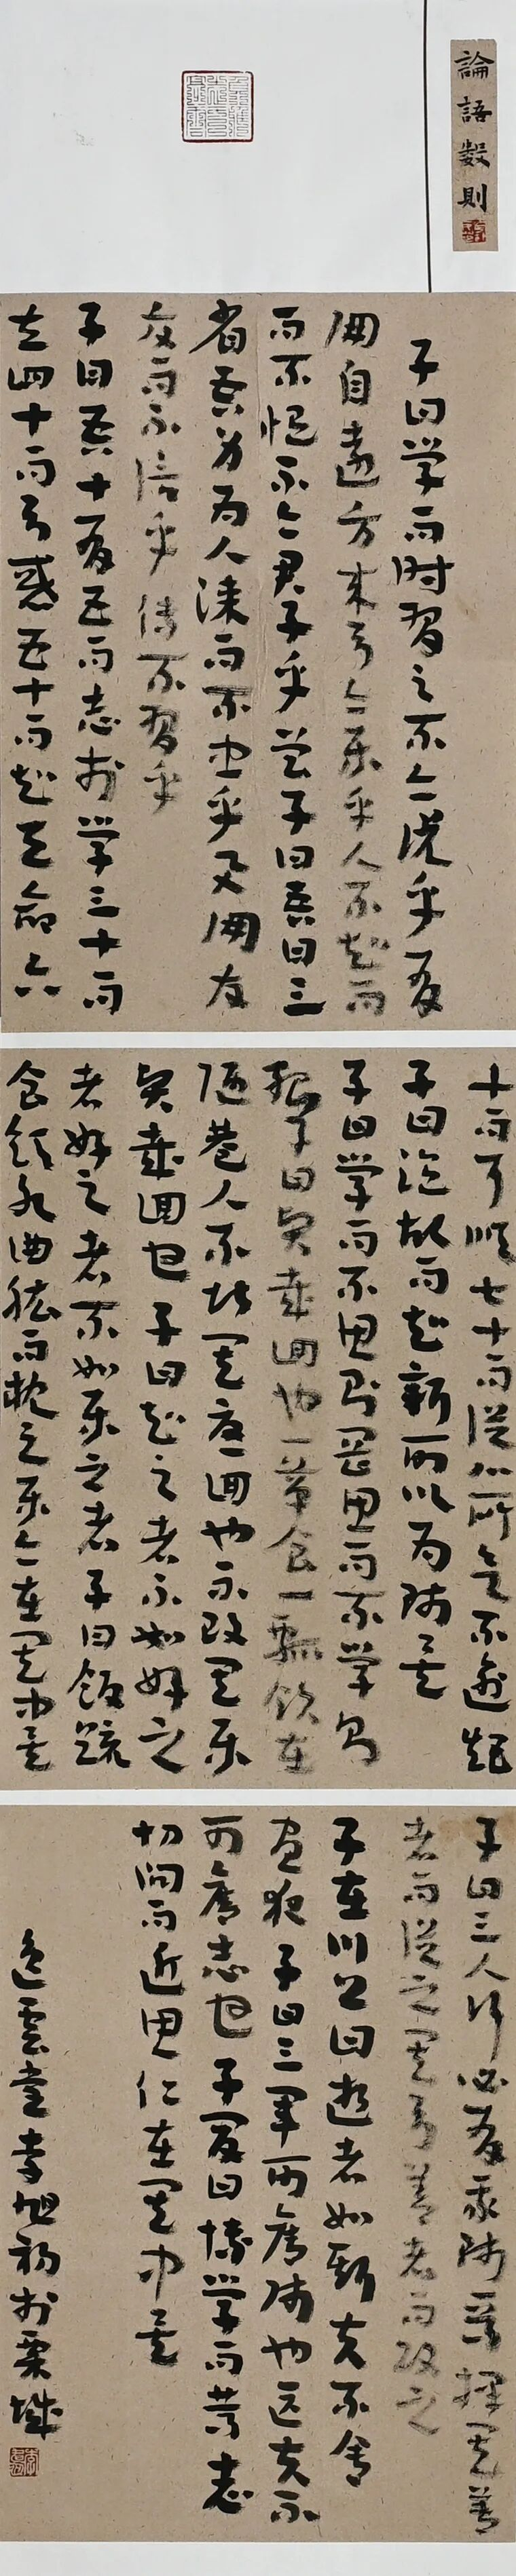 論語數則
子曰学而时習之不亦说乎有
朋自遠方来不亦乐乎人不知而
而不愠不亦君子乎曾子曰吾日三
省吾身为人谋而不忠乎又朋友
友而不信乎传不習乎
子曰吾十有五而志於学三十而
立四十而不惑五十而知天命六
十而耳順七十而從心所欲不逾矩
子曰温故而知新可以为师矣
子曰学而不思则罔思而不学则
殆子曰贤哉回也一箪食一瓢饮在
陋巷人不堪其忧回也不改其乐
贤哉回也子曰知之者不如好之
者好之者不如乐之者子曰饭疏
食饮水曲肱而枕之乐亦在其中矣
子曰三人行必有我师焉择其善
者而從之其不善者而改之
子在川上曰逝者如斯夫不舍
昼夜子曰三军可夺帅也匹夫不
可夺志也子夏曰博学而笃志
切问而近思仁在其中矣
逸雲堂李旭初於栗城